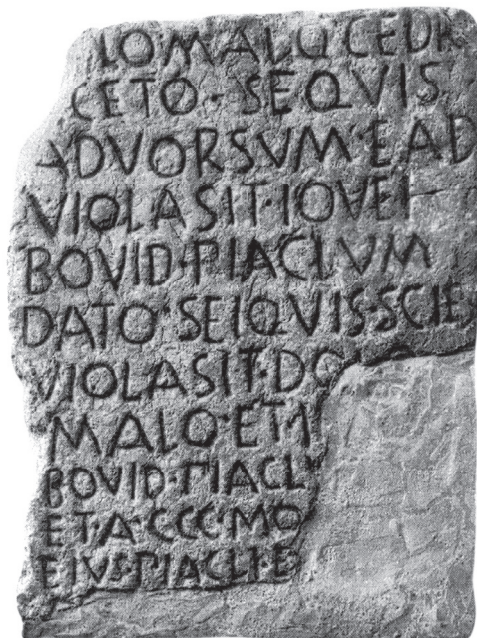 LO·MALO CEDR
CETO·SEQVIS
ADVORSVM·EAD
VIOLASIT·IOVEI
BOVID·PIACLVM
DATO·SEIQVIS·SCIE
VIOLASIT·DO
MALO·ET·I
BOVID·PIACL
ET·A·CCC·MO
EIVS·PIACLI·E